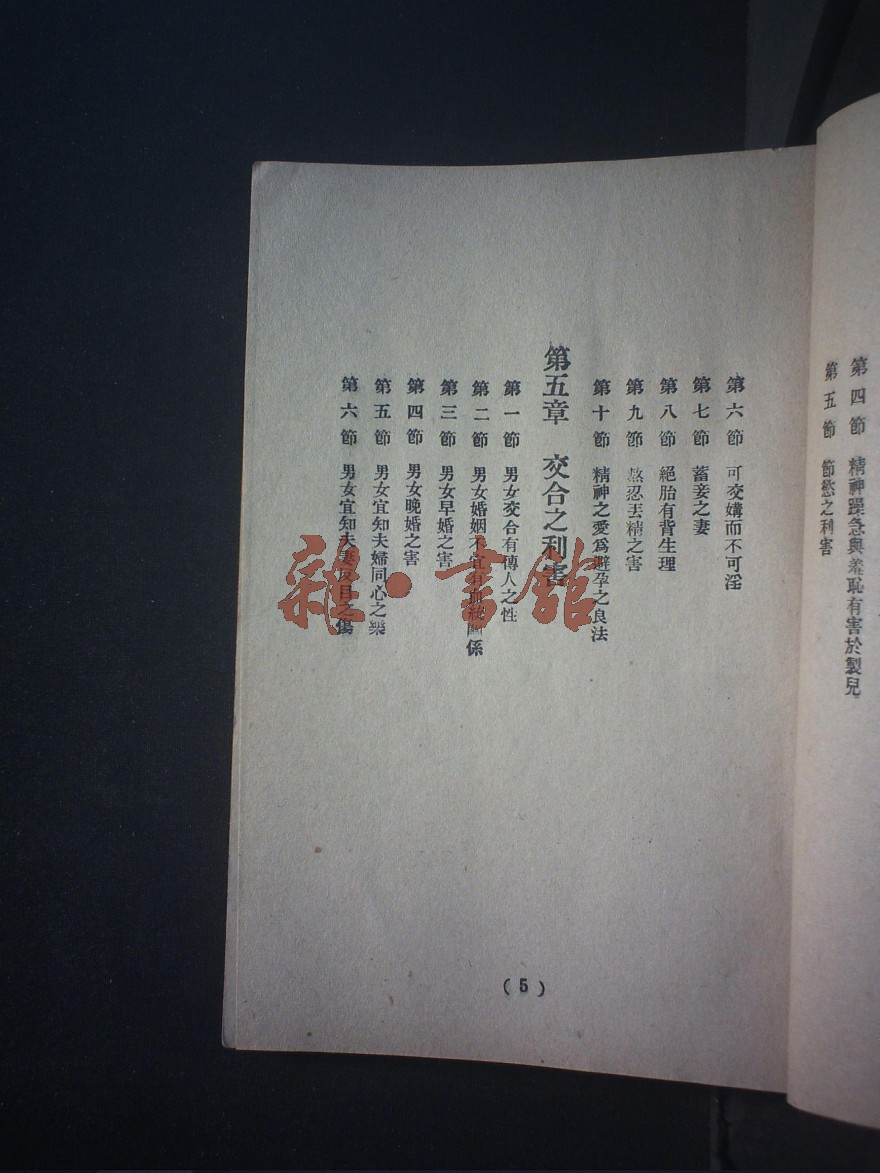 第四節　精神躁急與羞恥有害於製兒
第五節　節慾之利害
第六節　可交媾而不可淫
第七節　蓄妾之妻
第八節　絕胎有背生理
第九節　熬忍丟精之害
第十節　精神之愛爲避孕之良法
第五章　交合之利害
第一節　男女交合有傳人之性
第二節　男女婚姻不宜有血統關係
第三節　男女早婚之害
第四節　男女晚婚之害
第五節　男女宜知夫婦同心之樂
第六節　男女宜知夫妻反目之傷
(5)
雜·書館